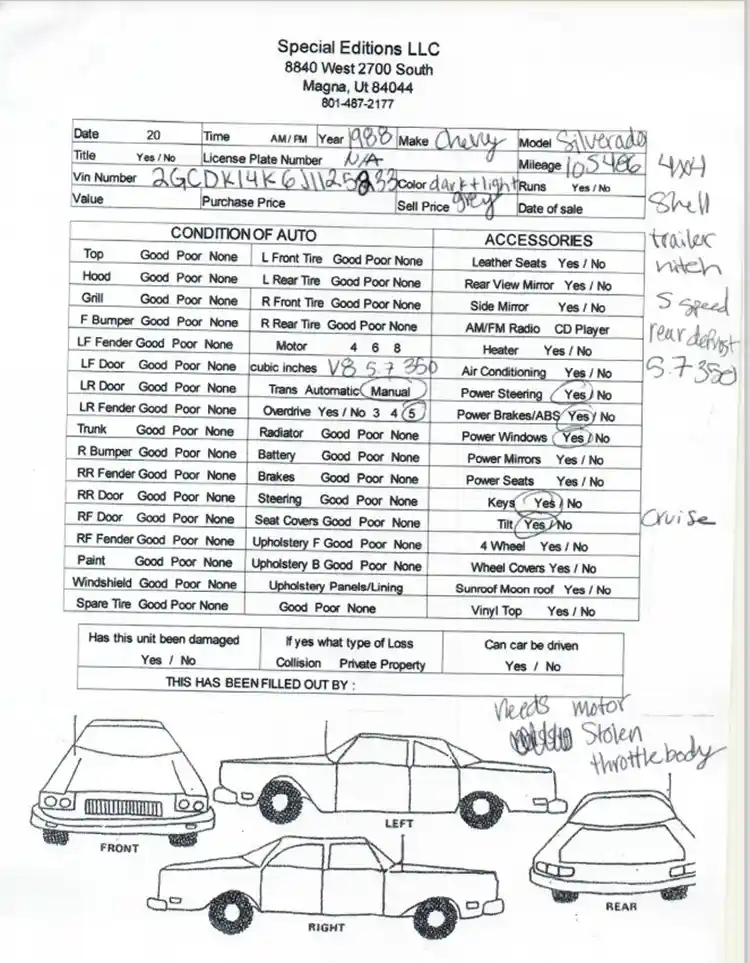 Special Editions LLC
8840 West 2700 South
Magna, Ut 84044
801-487-2177
Date 20 Time AM / PM Year 1988 Make Chevy Model Silverado
Title Yes / No License Plate Number N/A Mileage 105486 4x4
Vin Number Color dark + light Runs Yes / No
Value Purchase Price Sell Price grey Date of sale Shell
CONDITION OF AUTO ACCESSORIES trailer
Top Good Poor None L Front Tire Good Poor None Leather Seats Yes / No hitch
Hood Good Poor None L Rear Tire Good Poor None Rear View Mirror Yes / No
Grill Good Poor None R Front Tire Good Poor None Side Mirror Yes / No 5 speed
F Bumper Good Poor None R Rear Tire Good Poor None AM/FM Radio CD Player rear defrost
LF Fender Good Poor None Motor 4 6 8 Heater Yes / No
LF Door Good Poor None cubic inches V8 5.7 350 Air Conditioning Yes / No 5.7 350
LR Door Good Poor None Trans Automatic Manual Power Steering Yes / No
LR Fender Good Poor None Overdrive Yes / No 3 4 5 Power Brakes/ABS Yes / No
Trunk Good Poor None Radiator Good Poor None Power Windows Yes / No
R Bumper Good Poor None Battery Good Poor None Power Mirrors Yes / No
RR Fender Good Poor None Brakes Good Poor None Power Seats Yes / No
RR Door Good Poor None Steering Good Poor None Keys Yes / No
RF Door Good Poor None Seat Covers Good Poor None Tilt Yes / No Cruise
RF Fender Good Poor None Upholstery F Good Poor None 4 Wheel Yes / No
Paint Good Poor None Upholstery B Good Poor None Wheel Covers Yes / No
Windshield Good Poor None Upholstery Panels/Lining Sunroof Moon roof Yes / No
Spare Tire Good Poor None Good Poor None Vinyl Top Yes / No
Has this unit been damaged If yes what type of Loss Can car be driven
Yes / No Collision Private Property Yes / No
THIS HAS BEEN FILLED OUT BY :
needs motor
Stolen
throttlebody
LEFT
FRONT
REAR
RIGHT